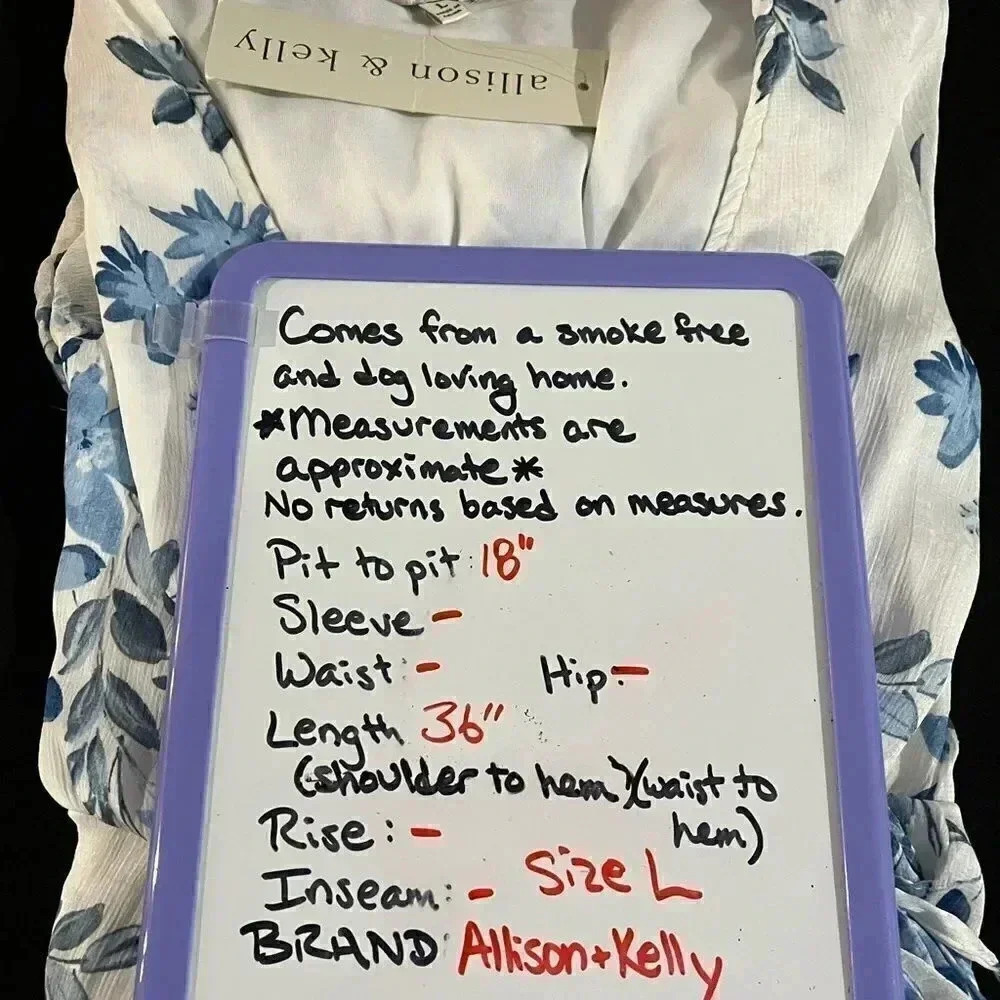 allison & kelly
Comes from a smoke free
and dog loving home.
*Measurements are
approximate*
No returns based on measures.
Pit to pit: 18"
Sleeve -
Waist: - Hip: -
Length 36"
(shoulder to hem)(waist to
hem)
Rise: -
Inseam: - Size L
BRAND: Allison + Kelly